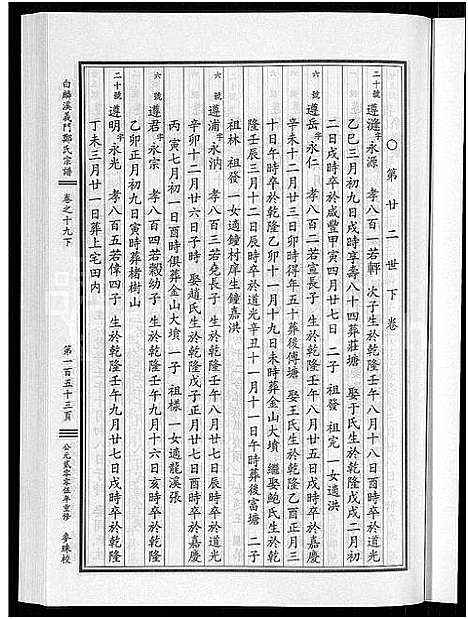 ○第廿二世下卷
二十號 遵漋字永源 孝八百一若軒 次子生於乾隆壬午八月十八日酉時卒於道光
乙巳三月初九日戌時享壽八十四葬莊塘 娶于氏生於乾隆戊戌二月初
二日戌時卒於咸豐甲寅四月廿七日 二子 祖發 祖完 一女適洪
六號 遵岳字永仁 孝八百二若宣長子 生於乾隆壬午八月廿五日戌時卒於嘉慶
辛未十二月廿三日卯時得年五十葬後傅塘 娶王氏生於乾隆乙酉正月三
十日午時卒於乾隆乙卯十一月十九日未時葬金山大墳 繼娶鮑氏生於乾
隆壬辰三月十二日辰時卒於道光辛丑十一月十一日午時葬後富塘 二子
祖林 祖發 一女適鐘村庠生鐘嘉洪
六號 遵浦字永汭 孝八百三若堯長子 生於乾隆壬午八月廿七日辰時卒於嘉慶
辛卯十二月廿六日子時 娶趙氏生於乾隆戊子正月廿七日戌時卒於嘉慶
丙寅七月初一日酉時俱葬金山大墳 一子 祖樣 一女適龍溪張
六號 遵君字永宗 孝八百四若穀幼子 生於乾隆壬午九月十六日亥時卒於乾隆
乙卯正月初九日寅時葬楮樹山
二十號 遵明字永光 孝八百五若偉四子 生於乾隆壬午九月廿七日戌時卒於乾隆
丁未三月廿一日葬上宅田內
白麟溪義門鄭氏宗譜
卷之十九下
第一百五十三頁
公元貳零零伍年重修
參珠校